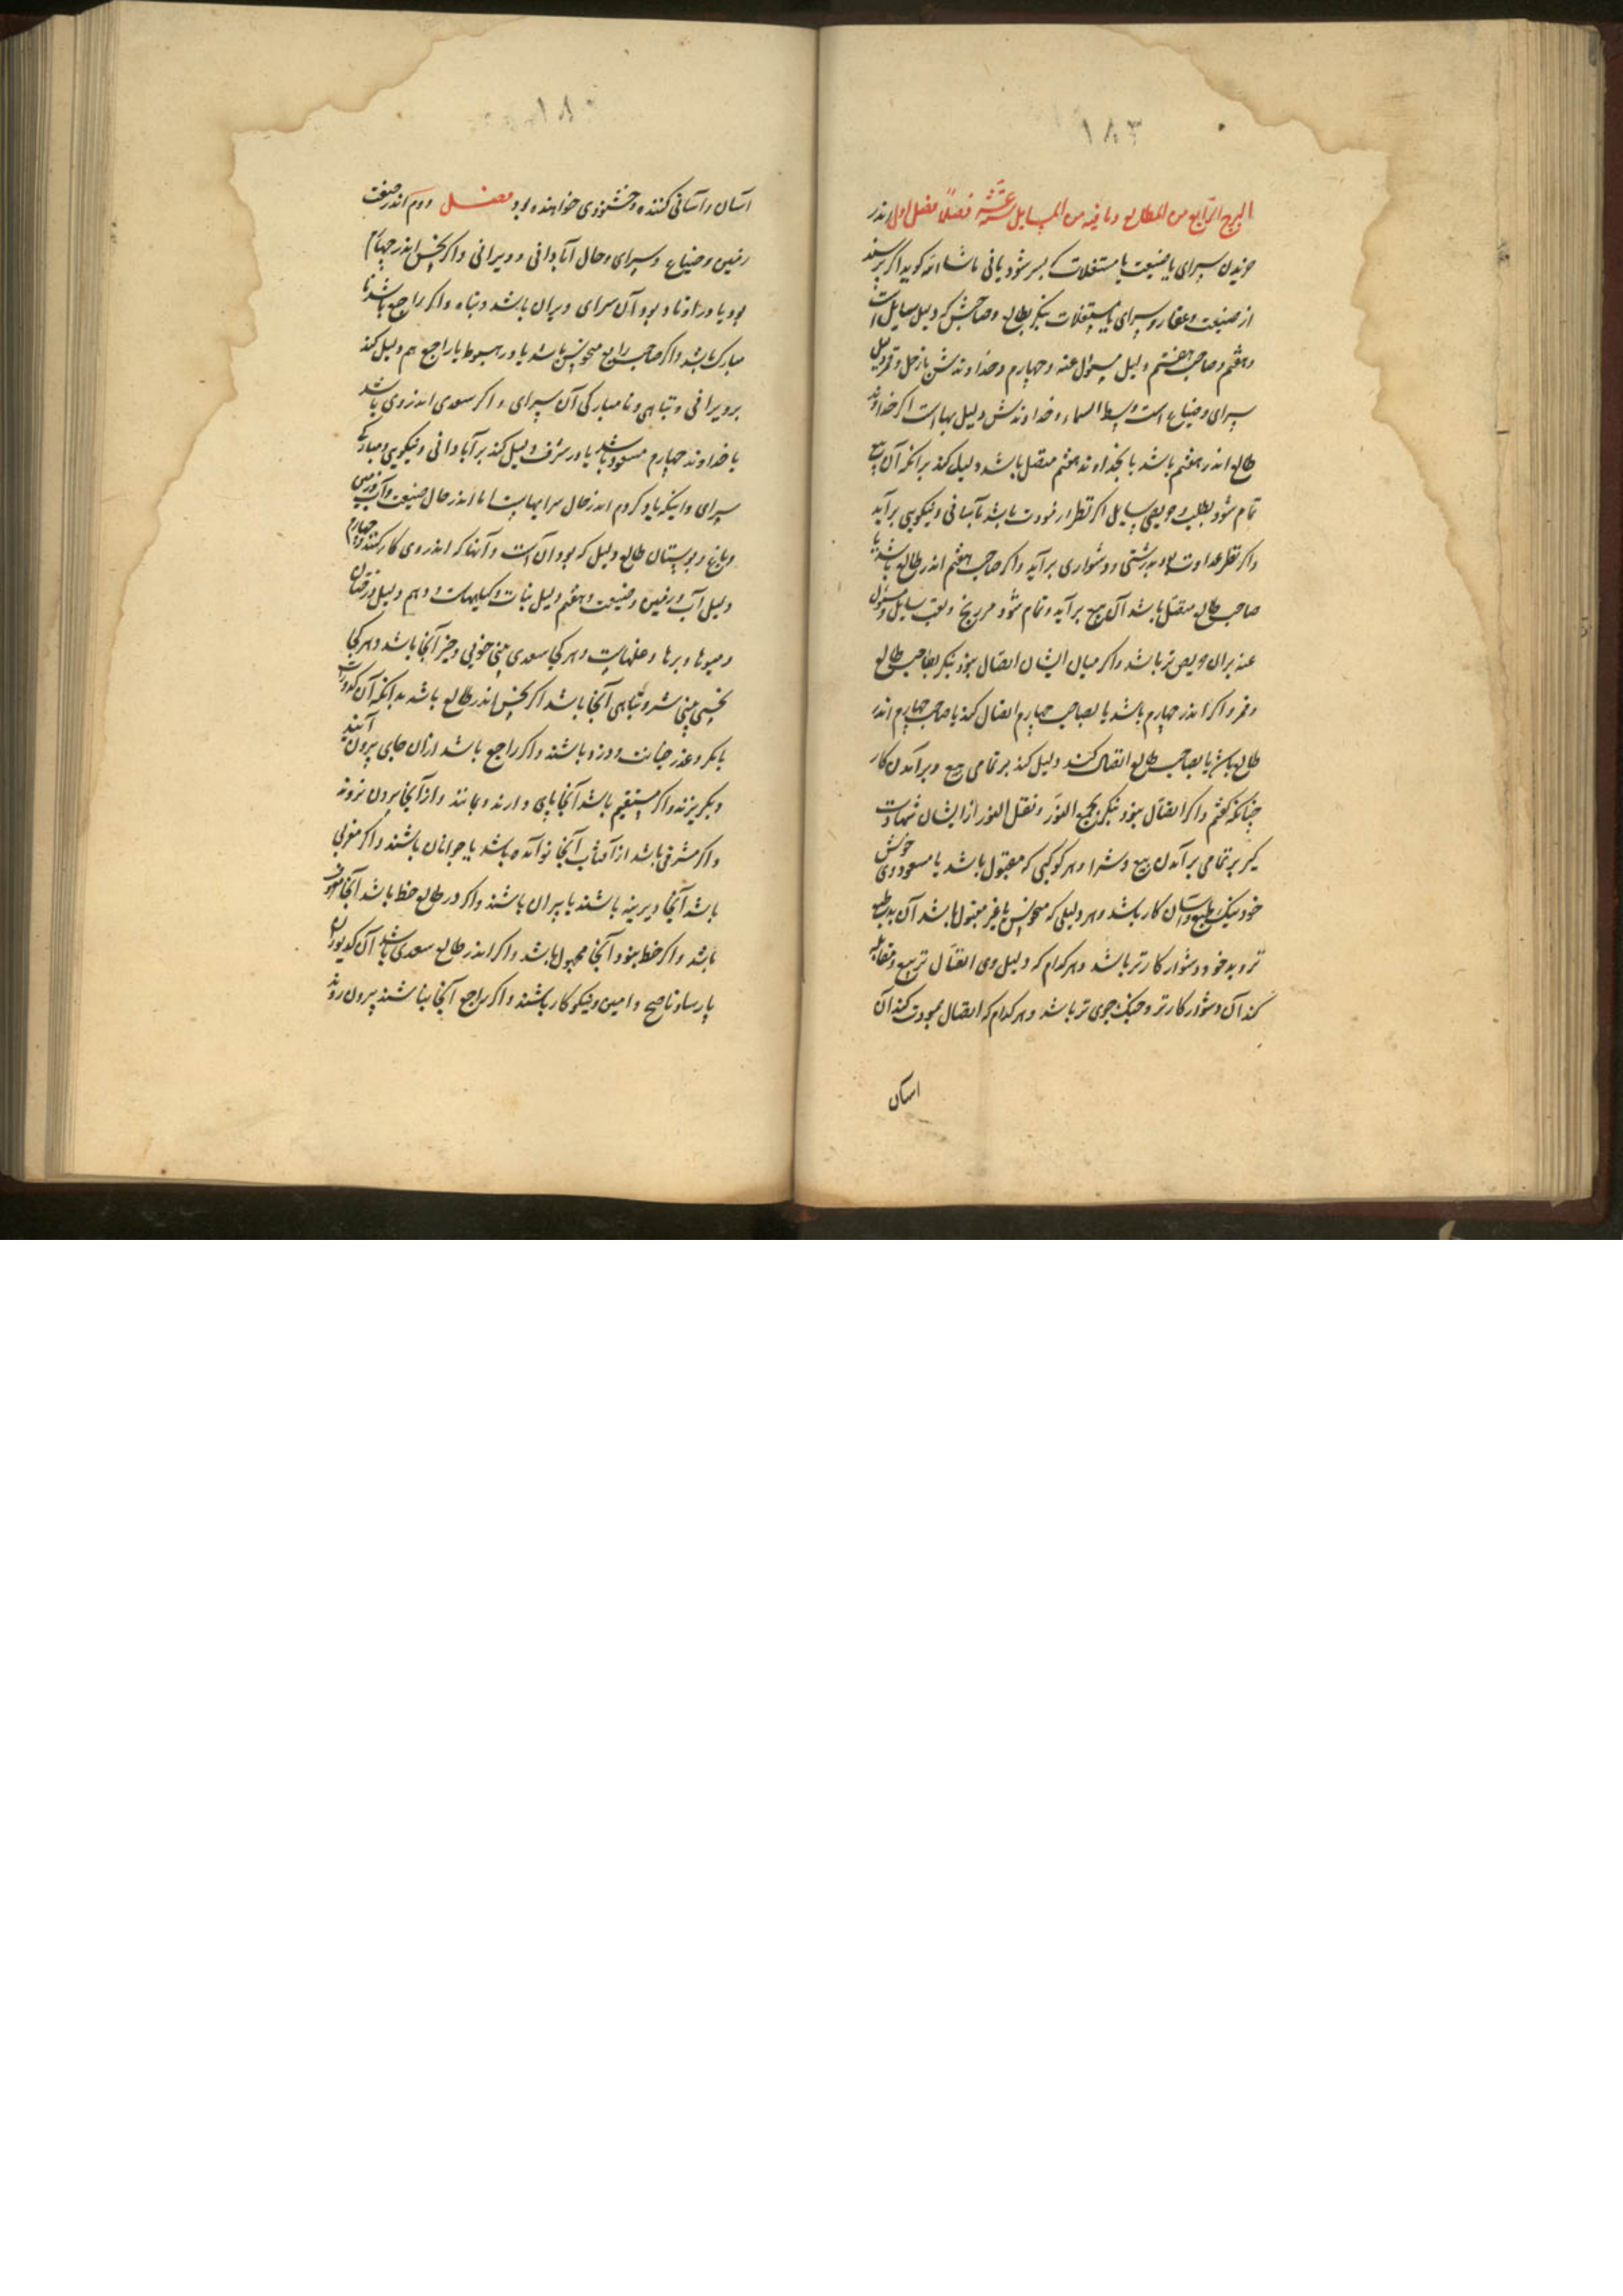 ۱۸۳
البرج الرابع من الطالع وما فیه من المسایل عشر فصلاً فصل اول اندر
خریدن سرای یا ضیعت یا مستغلات که بسر شود یا نی ماشاءالله کوید اکر پرسند
از ضیعت و عقار و سرای یا مستغلات بنکر بطالع و صاحبش که دلیل سایل است
و هفتم و صاحب هفتم دلیل مسول عنه و چهارم و خداوندش باز حل و قمر دلیل
سرای و ضیاع است و وسط السماء و خداوندش دلیل بهااست اکر خداوند
طالع اندر هفتم باشد یا بخداوند هفتم متصل باشد دلیل کند برانکه آن بیع
تمام شود بطلب و حریصی سایل اکر نظر از مودت باشد بآسانی و نیکویی برآید
واکر نظر عداوت بود برشتی و دشواری برآید واکر صاحب هفتم اندر طالع باشد یا
صاحب طالع متصل باشد آن بیع برآید و تمام شود بی رنج و تعب سایل و مسول
عنه بران حریص تر باشد واکر میان ایشان اتصال نبود بنکر بصاحب طالع
و قمر واکر اندر چهارم باشد یا بصاحب چهارم اتصال کند یا صاحب چهارم اندر
طالع باشد یا بصاحب طالع اتصال کند دلیل کند بر تمامی بیع و برآمدن کار
چنانکه کفتم واکر اتصال نبود بنکر بجمع النور و نقل النور از ایشان شهادت
کیر بر تمامی برآمدن بیع و شرا و هر کوکبی که مقبول باشد یا مسعود وی خوش
خو و نیک طبع و آسان کار باشد و هر دلیلی که منحوس یا غیر مقبول باشد آن بد طبع
تر و بدخو و دشوار کارتر باشد و هر کدام که دلیل وی اتصال تربیع و مقابله
کند آن دشوار کارتر و جنک جوی تر باشد و هر کدام که اتصال مودت کند آن
اسان
۱۸
آسان و آسانی کننده و خشنودی خواهنده بود فصل دوم اندر صفت
زمین و ضیاع و سرای و حال آبادانی و ویرانی واکر نحس اندر چهارم
بود یا در اوتاد بود آن سرای ویران باشد و تباه واکر راجع باشد نا
مبارک باشد واکر صاحب رابع منحوس باشد یا در هبوط یا راجع هم دلیل کند
بر ویرانی و تباهی و نامبارکی آن سرای و اکر سعدی اندر وی باشد
یا خداوند چهارم مسعود باشد یا در شرف دلیل کند بر آبادانی و نیکویی و مبارکی
سرای و اینکه یاد کردم اندر حال سرایهاست اما اندر حال ضیعت و آب و زمین
و باغ و بوستان طالع دلیل که بود آن است و آنها که اندر وی کار کنند و چهارم
دلیل آب و زمین و ضیعت و هفتم دلیل نبات و کیاههاست و دهم دلیل درختان
و میوها و برها و غلهاست و هر کجا سعدی بینی خوبی و خیر آنجا باشد و هر کجا
نحسی بینی شر و تباهی آنجا باشد اکر نحس اندر طالع باشد بدانکه آن
با مکر و غدر و خیانت و دزد باشند واکر راجع باشد ازان جای بیرون آیند
و بکریزند واکر مستقیم باشد آنجا پای دارند و بمانند و از آنجا بیرون نروند
واکر مشرقی باشد از آفتاب آنجا نو آمده باشد یا جوانان باشند واکر مغربی
باشد آنجا دیرینه باشند یا پیران باشند واکر در طالع حظ باشد آنجا معروف
باشد واکر حظ نبود آنجا مجهول باشد واکر اندر طالع سعدی باشد آن
پارسا و ناصح و امین و نیکو کار باشند واکر راجع آنجا نباشند بیرون روند